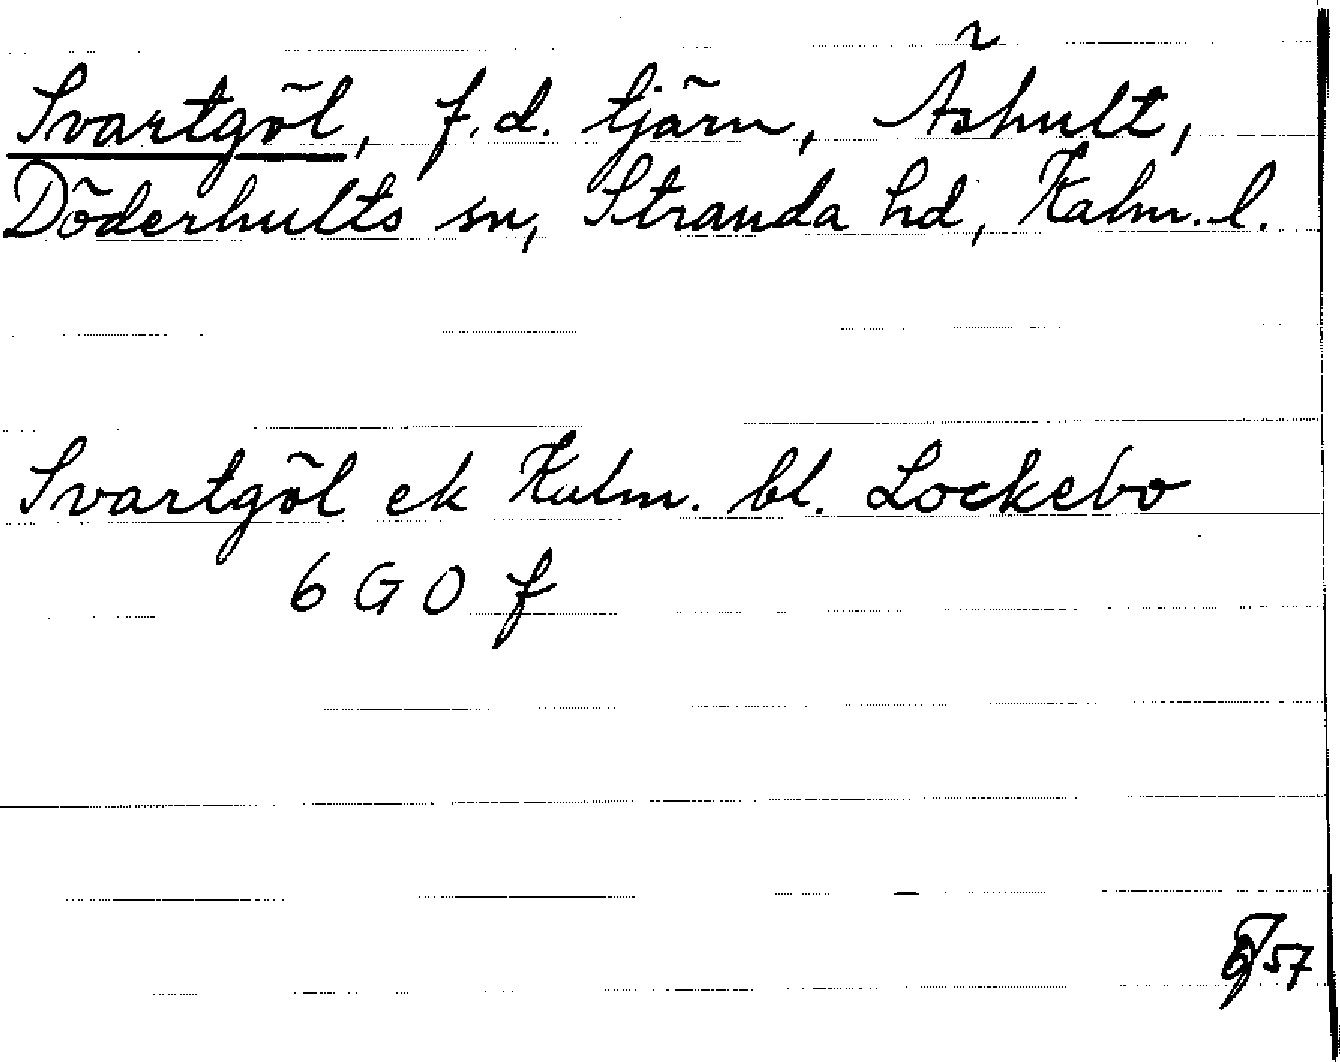 Svartgöl, f.d. tjärn, Äshult,
Döderhults sn, Stranda hd, Kalm. l.
Svartgöl ek Kalm. bl. Lockebo
6 G 0 f
57